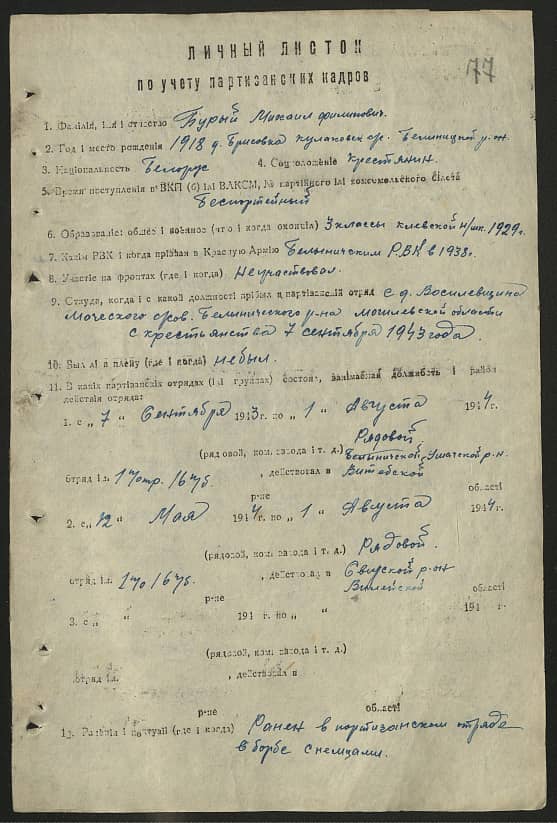 77
ЛИЧНЫЙ ЛИСТОК
по учету партизанских кадров
1. Фамілія, імя і отчество Бурый Михаил филипович.
2. Год і место рождения 1918 д. Брисовка кулаковск с/с. Белыницкой р-он.
3. Національность Белорус 4. Соцположение крестянин.
5. Время поступления в ВКП (б) ілі ВЛКСМ, № партійного ілі комсомольского білета
Беспортейный
6. Образованіе: общее і военное (что і когда окончіл) 3 классы киевской н/шк. 1929 г.
7. Какім РВК і когда прізван в Красную Армію Белыничским РВК в 1938 г.
8. Участіе на фронтах (где і когда) Неучаствовал.
9. Откуда, когда і с какой должності прібыл в партізанскій отряд с д. Восилевщина
Моческого с/сов. Белынического р-на могилевской области
с крестьянства 7 сентября 1943 года.
10. Был лі в плену (где і когда) небыл.
11. В какіх партізанскіх отрядах (ілі группах) состоял, занімаемая должность і район
действія отряда:
1. с „ 7 „ Сентября 1943 г. по „ 1 „ Августа 1944 г.
Рядовой
(рядовой, ком. взвода і т. д.) Белыничской, Ушачской р-н.
отряд ілі 17 отр. 16 п/б. , действовал в Витебской
р-не області
2. с „ 12 „ Мая 1944 г. по „ 1 „ Августа 1944 г.
(рядовой, ком. взвода і т. д.) Рядовой.
отряд ілі 17 о 16 п/б. , действовал в Свирской р-он
р-не Вилейской області
3. с „ „ 194 г. по „ „ 194 г.
(рядовой, ком. взвода і т. д.)
отряд ілі , действовал в
р-не області
13. Раненія і контузіі (где і когда) Ранен в портизанском отряде
в борбе с немцами.